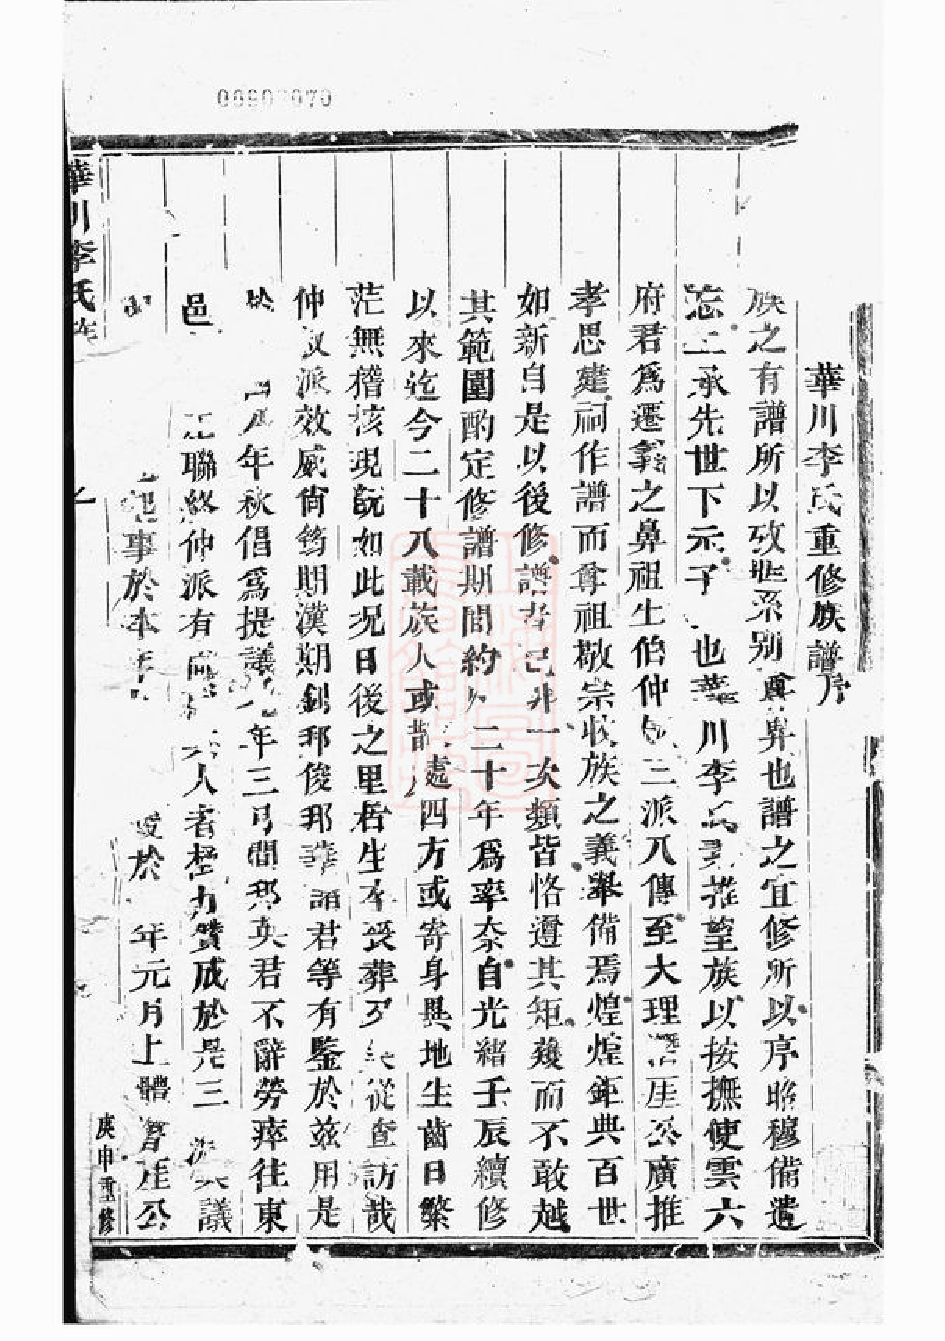 00902070
華川李氏重修族譜序
族之有譜所以攷世系别尊卑也譜之宜修所以序昭穆備遺
忘上承先世下示子 也華川李氏素推望族以按撫使雲六
府君爲遷義之鼻祖生伯仲叔三派八傳至大理 崖公廣推
孝思建祠作譜而尊祖敬宗收族之義舉備焉煌煌鉅典百世
如新自是以後修譜者已非一次類皆恪遵其矩矱而不敢越
其範圍酌定修譜期間約以二十年爲率奈自光緒壬辰續修
以來迄今二十八載族人或散處四方或寄身異地生齒日繁
茫無稽核現旣如此况日後之里居生卒喪葬 從查訪哉
仲叔派效威尙筠期漢期釗邦俊邦 諸君等有鑒於兹用是
於 年秋倡爲提議 年三月間邦英君不辭勞瘁往東
邑 聯絡仲派有 人者極力贊成於是三 議
事於本年 於 年元月上體 崖公
華川李氏族
庚申重修